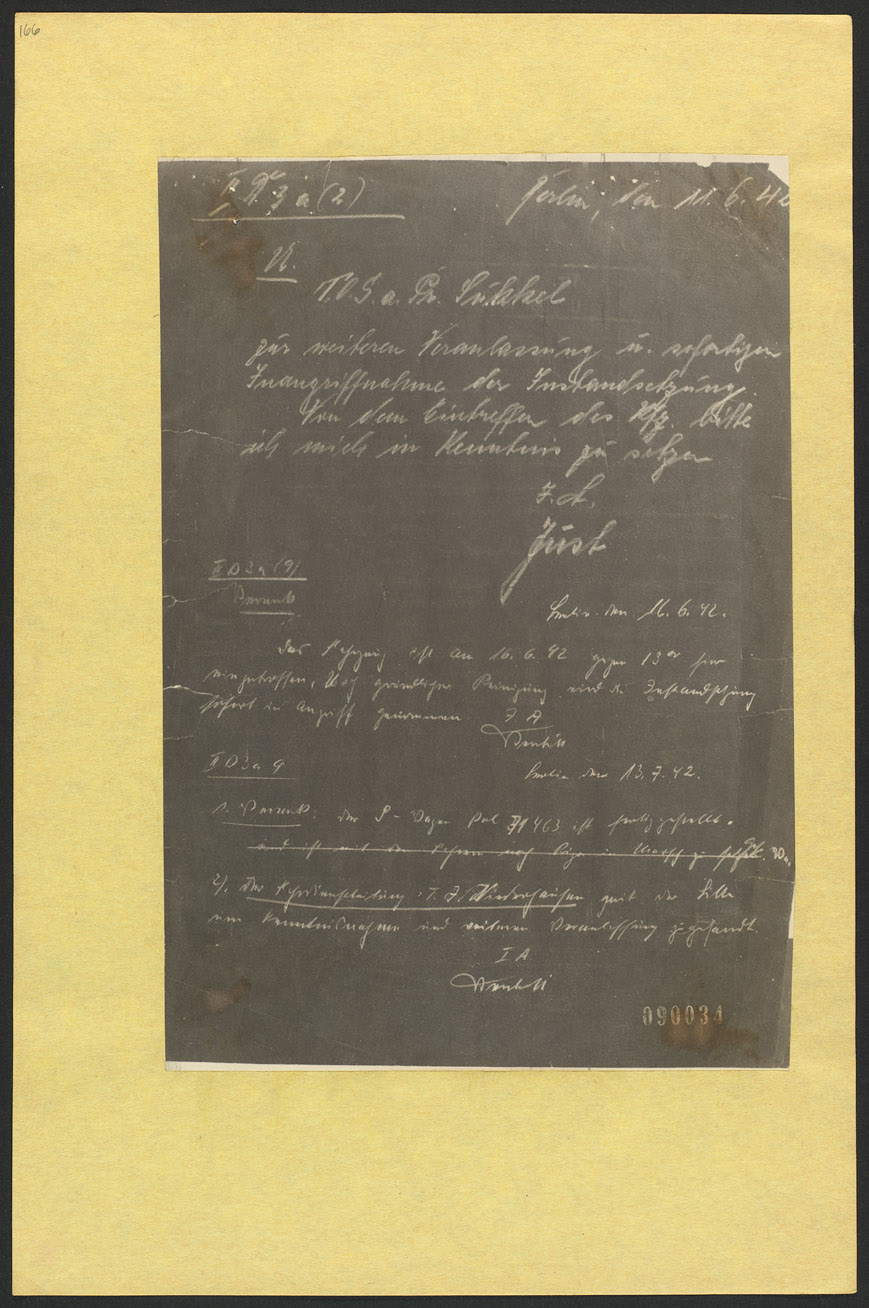 166
II D 3 a (2)
Berlin, den 11.6.42
U.
T.O.S. a. Pr. Sukkel
zur weiteren Veranlassung u. sofortigen
Inangriffnahme der Instandsetzung.
Von dem Eintreffen des Kfz. bitte
ich mich in Kenntnis zu setzen
I.A.
Just
II D 3 a (9)
Vermerk
Berlin den 16.6.42.
Das Fahrzeug ist am 16.6.42 gegen 13 00 hier
eingetroffen, Nach gründlicher Reinigung wird die Instandsetzung
sofort in Angriff genommen.
I A
II D 3 a 9
Berlin den 13.7.42.
1. Vermerk: der S-Wagen Pol 71463 ist fertiggestellt.
und ist mit dem Fahrer nach Riga in Marsch zu
2). Der Fahrdienstleitung z. Hd. Niederhausen mit der Bitte
um Kenntnisnahme und weiteren Veranlassung zugesandt.
I A
090034